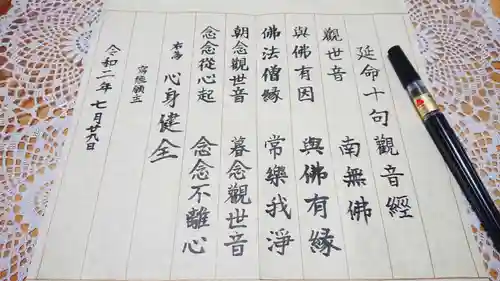 延命十句觀音經
觀世音 南無佛
與佛有因 與佛有緣
佛法僧緣 常樂我淨
朝念觀世音 暮念觀世音
念念從心起 念念不離心
為 心身健全
寫經願主
令和二年 七月廿九日